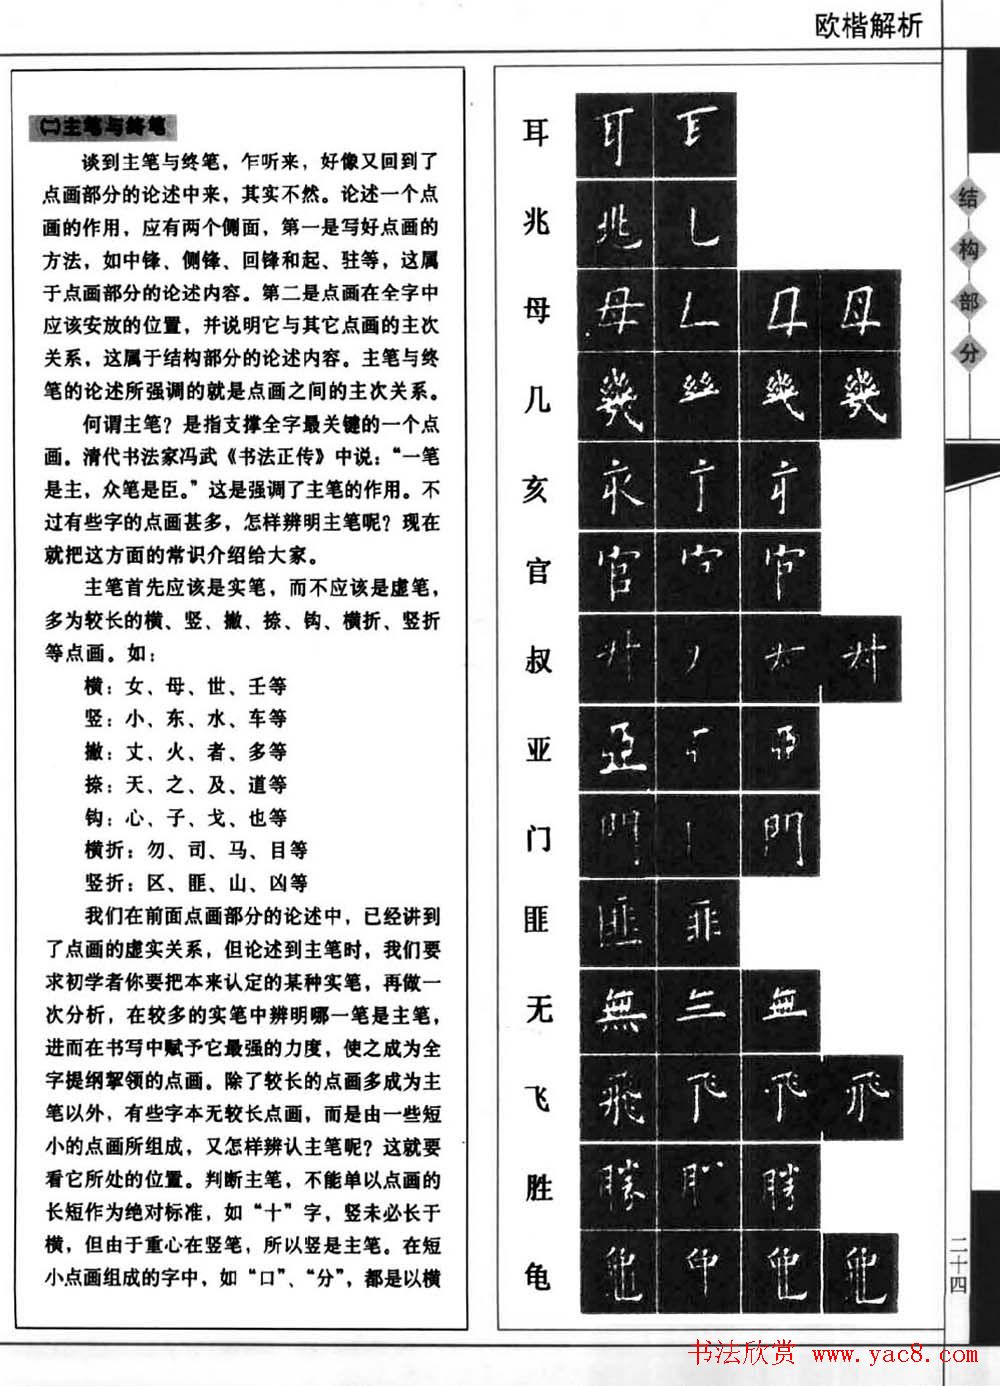 欧楷解析
㈡主笔与终笔
谈到主笔与终笔，乍听来，好像又回到了
点画部分的论述中来，其实不然。论述一个点
画的作用，应有两个侧面，第一是写好点画的
方法，如中锋、侧锋、回锋和起、驻等，这属
于点画部分的论述内容。第二是点画在全字中
应该安放的位置，并说明它与其它点画的主次
关系，这属于结构部分的论述内容。主笔与终
笔的论述所强调的就是点画之间的主次关系。
何谓主笔？是指支撑全字最关键的一个点
画。清代书法家冯武《书法正传》中说：“一笔
是主，众笔是臣。”这是强调了主笔的作用。不
过有些字的点画甚多，怎样辨明主笔呢？现在
就把这方面的常识介绍给大家。
主笔首先应该是实笔，而不应该是虚笔，
多为较长的横、竖、撇、捺、钩、横折、竖折
等点画。如：
横：女、母、世、壬等
竖：小、东、水、车等
撇：丈、火、者、多等
捺：天、之、及、道等
钩：心、子、戈、也等
横折：勿、司、马、目等
竖折：区、匪、山、凶等
我们在前面点画部分的论述中，已经讲到
了点画的虚实关系，但论述到主笔时，我们要
求初学者你要把本来认定的某种实笔，再做一
次分析，在较多的实笔中辨明哪一笔是主笔，
进而在书写中赋予它最强的力度，使之成为全
字提纲挈领的点画。除了较长的点画多成为主
笔以外，有些字本无较长点画，而是由一些短
小的点画所组成，又怎样辨认主笔呢？这就要
看它所处的位置。判断主笔，不能单以点画的
长短作为绝对标准，如“十”字，竖未必长于
横，但由于重心在竖笔，所以竖是主笔。在短
小点画组成的字中，如“口”、“分”，都是以横
耳 耳
兆 兆
母 母
几 幾
亥 亥
官 官
叔
亚 亞
门 門 門
匪 匪 非
无 無 無
飞 飛
胜 勝 勝
龟
结构部分
二十四
书法欣赏 www.yac8.com